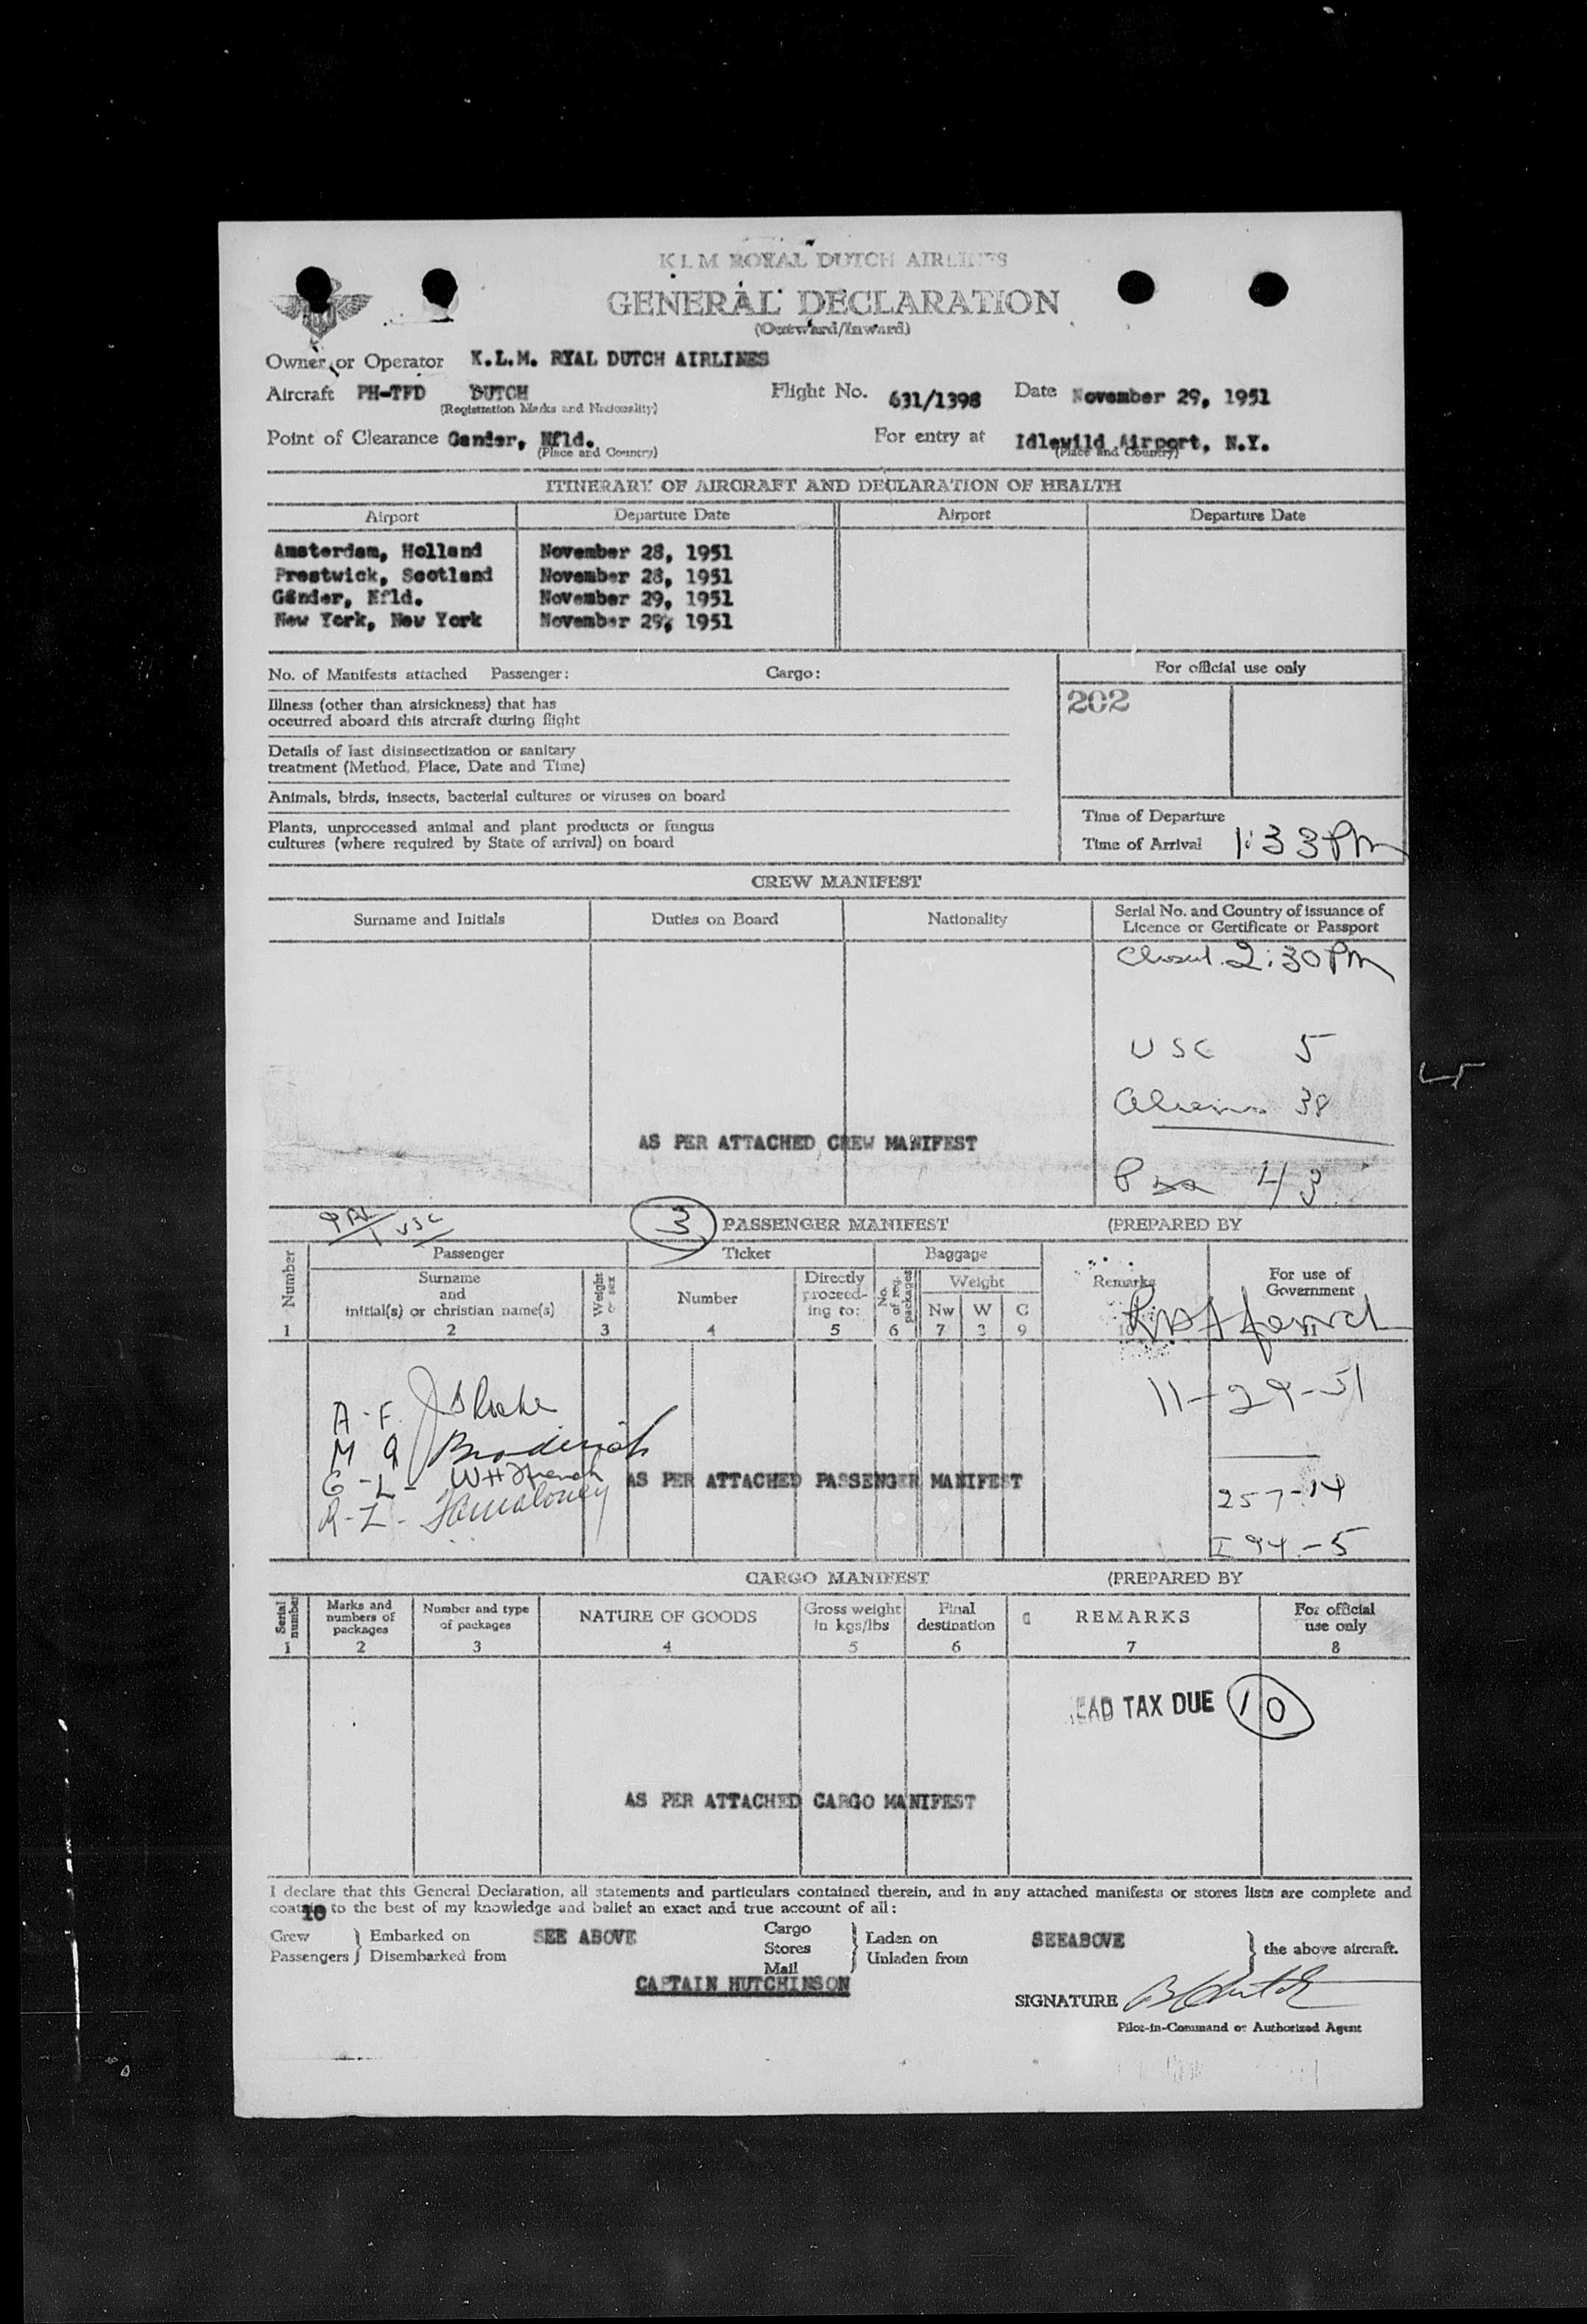 KLM ROYAL DUTCH AIRLINES
GENERAL DECLARATION
(Outward/Inward)
Owner or Operator K.L.M. RYAL DUTCH AIRLINES
Aircraft PH-TFD DUTCH Flight No. 631/1398 Date November 29, 1951
(Registration Marks and Nationality)
Point of Clearance Gander, Nfld. For entry at Idlewild Airport, N.Y.
(Place and Country) (Place and Country)
ITINERARY OF AIRCRAFT AND DECLARATION OF HEALTH
Airport Departure Date Airport Departure Date
Amsterdam, Holland November 28, 1951
Prestwick, Scotland November 28, 1951
Gander, Nfld. November 29, 1951
New York, New York November 29, 1951
No. of Manifests attached Passenger: Cargo: For official use only
202
Illness (other than airsickness) that has
occurred aboard this aircraft during flight
Details of last disinsectization or sanitary
treatment (Method, Place, Date and Time)
Animals, birds, insects, bacterial cultures or viruses on board
Plants, unprocessed animal and plant products or fungus
cultures (where required by State of arrival) on board
Time of Departure
Time of Arrival 1:33 PM
CREW MANIFEST
Surname and Initials Duties on Board Nationality Serial No. and Country of issuance of
Licence or Certificate or Passport
Closed 2:30 PM
USC 5
Aliens 38
AS PER ATTACHED CREW MANIFEST
43
USC
3 PASSENGER MANIFEST (PREPARED BY
Number Passenger Ticket Baggage Remarks For use of Government
Surname and initial(s) or christian name(s) Weight or sex Number Directly proceeding to: No. of reg. packages Weight
Nw W C
1 2 3 4 5 6 7 8 9 10 11
11-29-51
A-F.
M Q Broderick
G-L- WH French
R-Z- Maloney
AS PER ATTACHED PASSENGER MANIFEST
257-14
I 94-5
CARGO MANIFEST (PREPARED BY
Serial number Marks and numbers of packages Number and type of packages NATURE OF GOODS Gross weight in kgs/lbs Final destination REMARKS For official use only
1 2 3 4 5 6 7 8
EAD TAX DUE 10
AS PER ATTACHED CARGO MANIFEST
I declare that this General Declaration, all statements and particulars contained therein, and in any attached manifests or stores lists are complete and
contain to the best of my knowledge and belief an exact and true account of all:
10
Crew Embarked on SEE ABOVE Cargo Laden on SEEABOVE the above aircraft.
Passengers Disembarked from Stores Unladen from
Mail
CAPTAIN HUTCHINSON
SIGNATURE
Pilot-in-Command or Authorized Agent